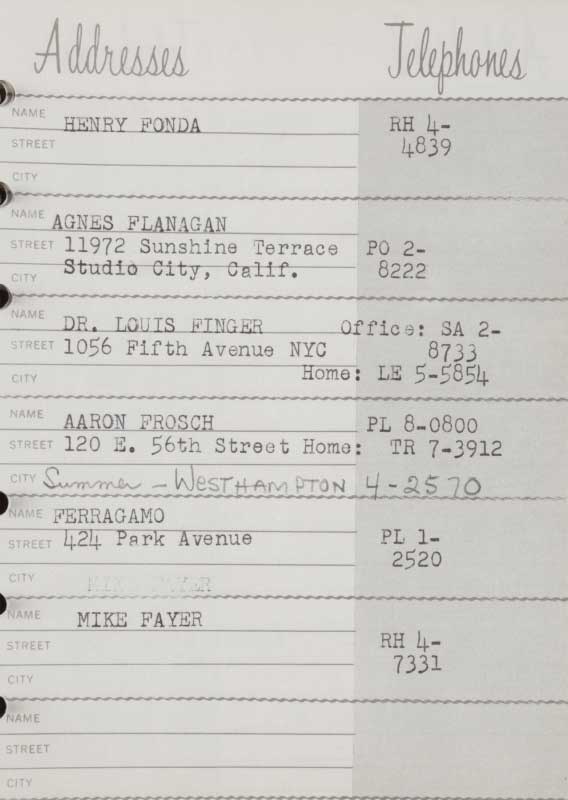 Addresses Telephones
NAME HENRY FONDA RH 4-
STREET 4839
CITY
NAME AGNES FLANAGAN
STREET 11972 Sunshine Terrace PO 2-
CITY Studio City, Calif. 8222
NAME DR. LOUIS FINGER Office: SA 2-
STREET 1056 Fifth Avenue NYC 8733
CITY Home: LE 5-5854
NAME AARON FROSCH PL 8-0800
STREET 120 E. 56th Street Home: TR 7-3912
CITY Summer - WESTHAMPTON 4-2570
NAME FERRAGAMO
STREET 424 Park Avenue PL 1-
2520
CITY MIKE FAYER
NAME MIKE FAYER
STREET RH 4-
7331
CITY
NAME
STREET
CITY